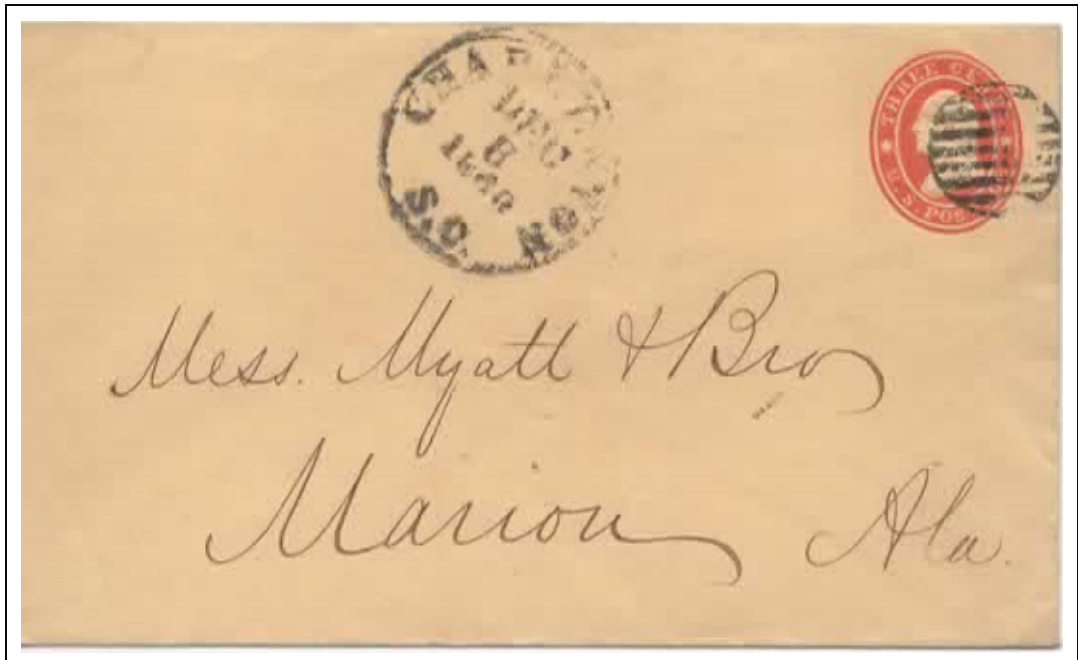 CHARLESTON
DEC
8
1860
S.C.
THREE CE
U. S. POS
Mess. Myatt & Bro
Marion Ala.